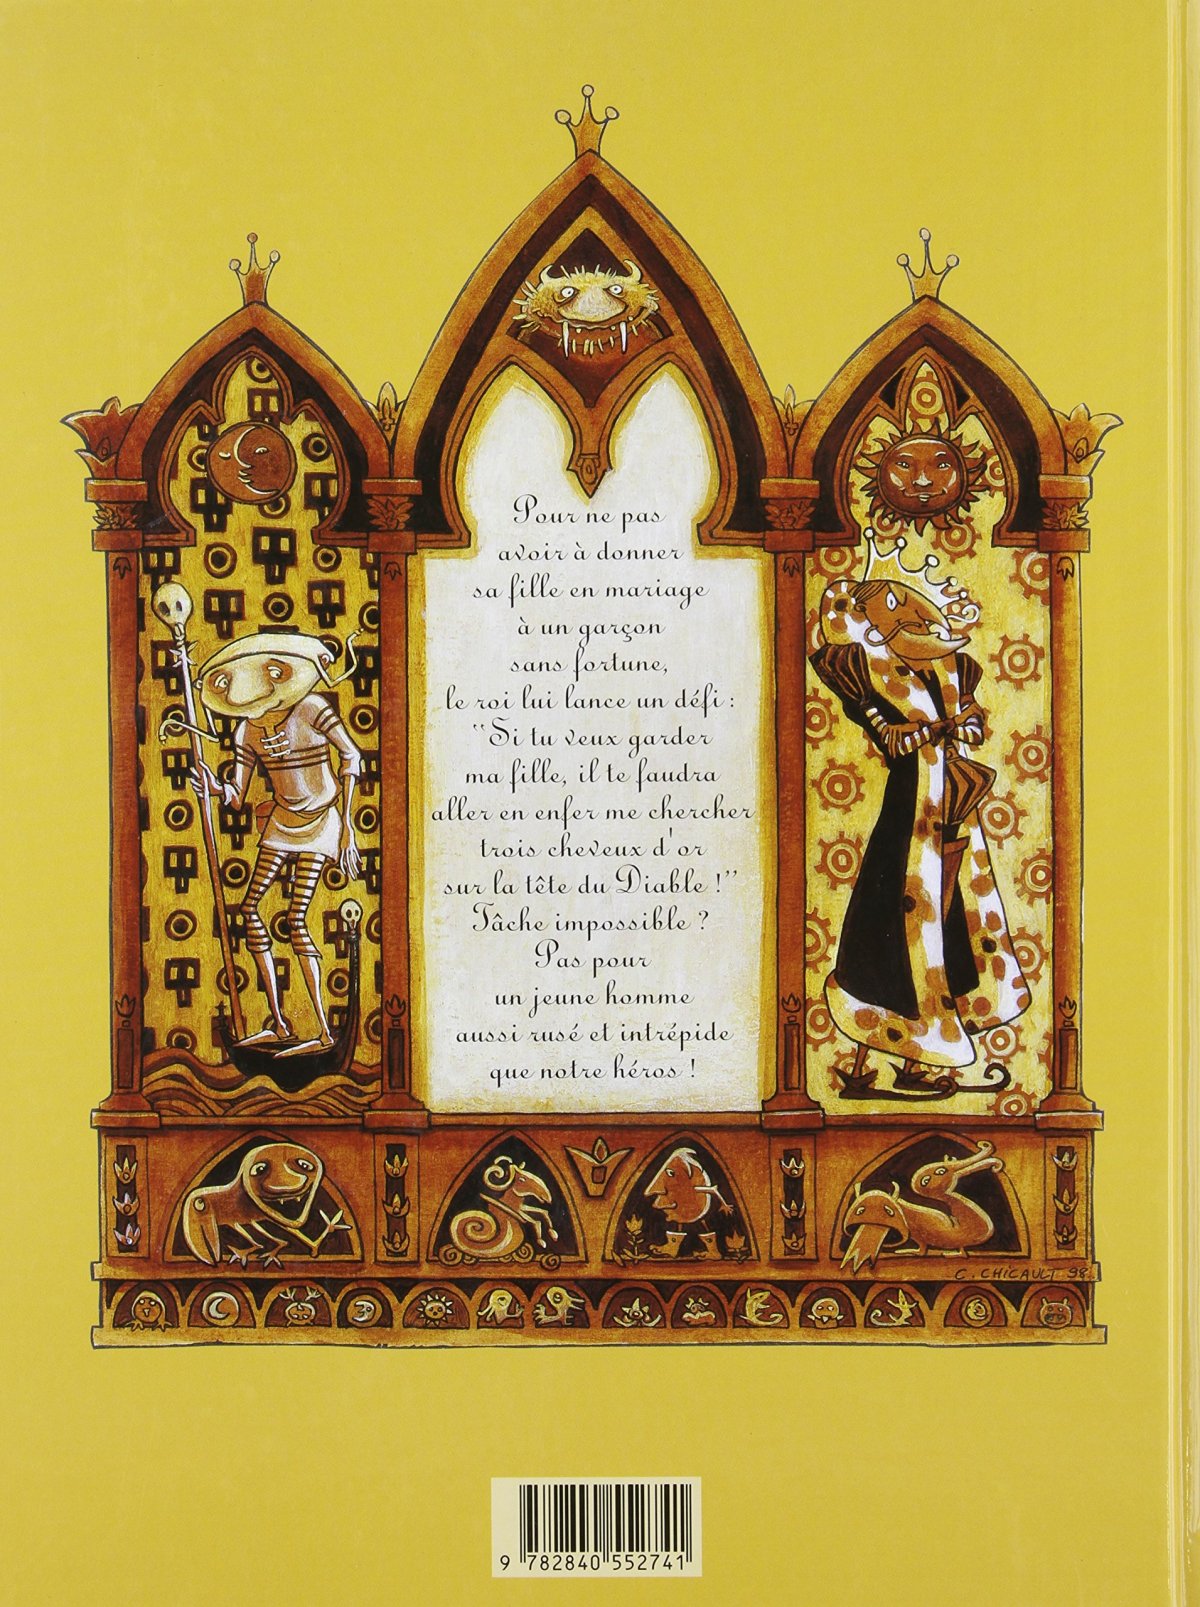 Pour ne pas
avoir à donner
sa fille en mariage
à un garçon
sans fortune,
le roi lui lance un défi :
“Si tu veux garder
ma fille, il te faudra
aller en enfer me chercher
trois cheveux d'or
sur la tête du Diable !”
Tâche impossible ?
Pas pour
un jeune homme
aussi rusé et intrépide
que notre héros !
C. CHICAULT 98
9 782840 552741